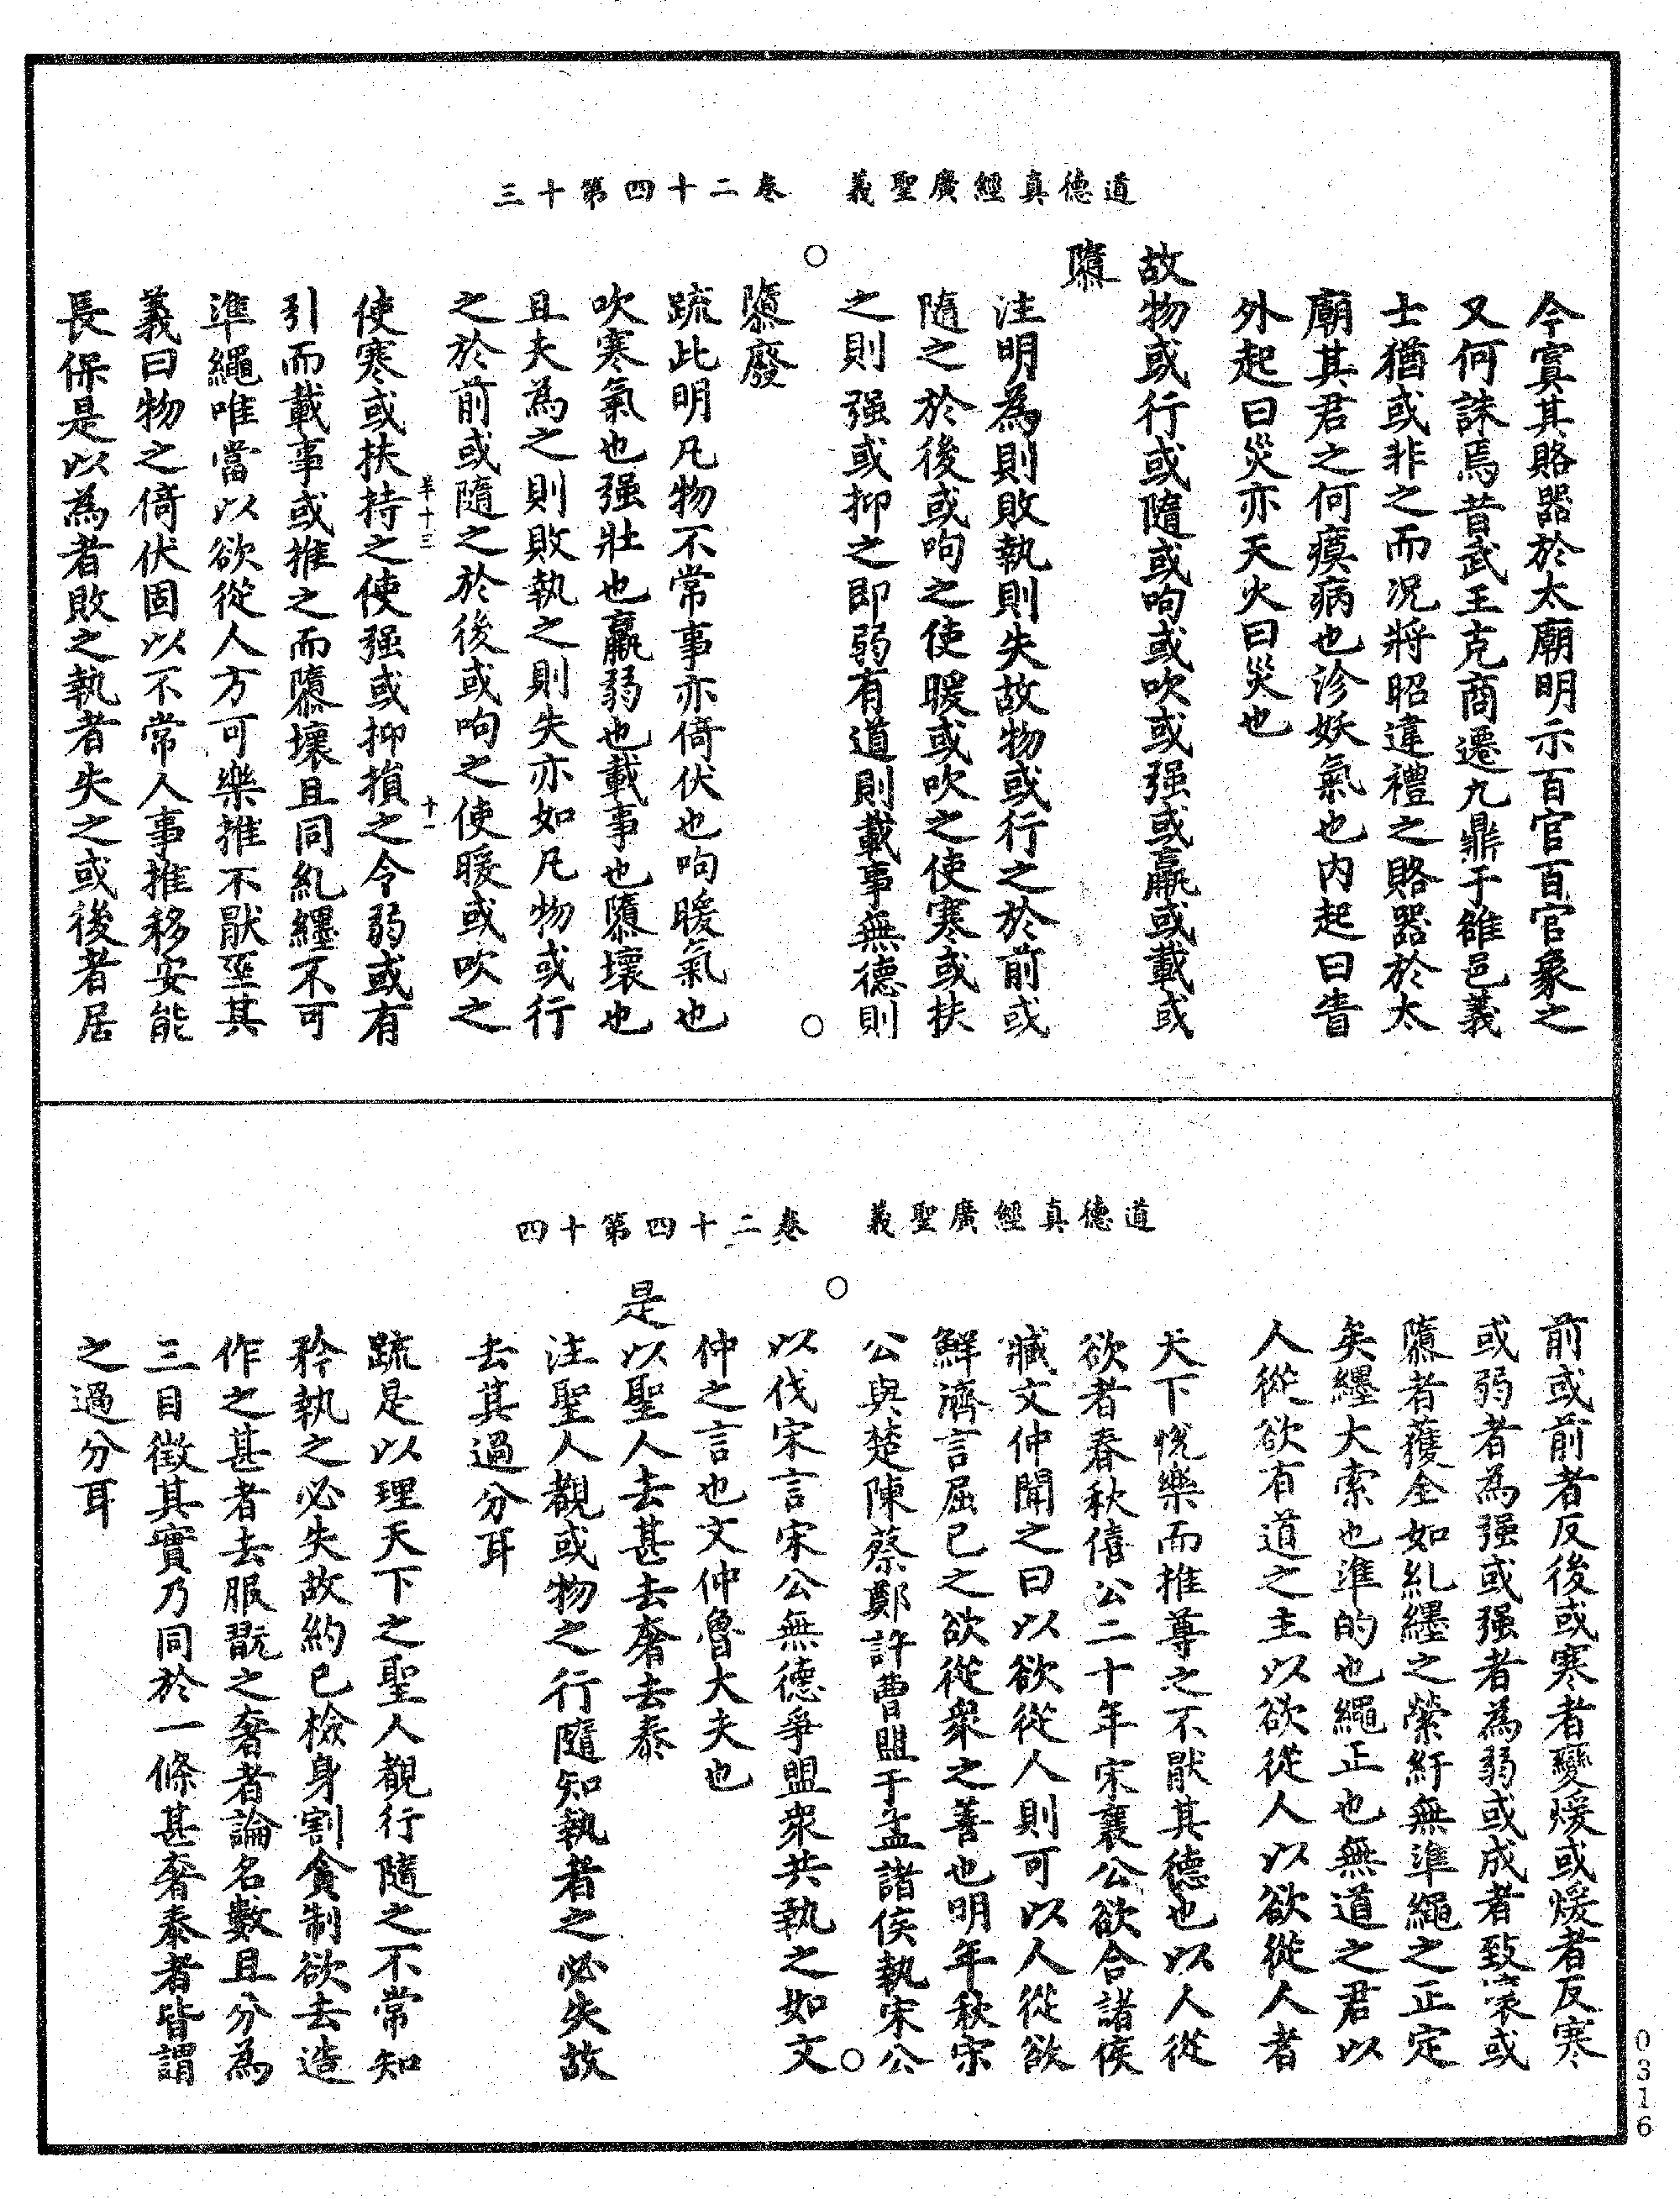 道德真經廣聖義　卷二十四第十三
今寘其賂器於太廟明示百官百官象之
又何誅焉昔武王克商遷九鼎于雒邑義
士猶或非之而況將昭違禮之賂器於太
廟其君之何瘼病也沴妖氣也內起曰眚
外起曰災亦天火曰災也
故物或行或隨或呴或吹或强或羸或載或
隳
注明為則敗執則失故物或行之於前或
隨之於後或呴之使暖或吹之使寒或扶
之則强或抑之即弱有道則載事無德則
隳廢
疏此明凡物不常事亦倚伏也呴暖氣也
吹寒氣也强壯也羸弱也載事也隳壞也
且夫為之則敗執之則失亦如凡物或行
之於前或隨之於後或呴之使暖或吹之
羊十三　十一
使寒或扶持之使强或抑損之令弱或有
引而載事或推之而隳壞且同糺纆不可
準繩唯當以欲從人方可樂推不猒至其
義曰物之倚伏固以不常人事推移安能
長保是以為者敗之執者失之或後者居
道德真經廣聖義　卷二十四第十四
前或前者反後或寒者變煖或煖者反寒
或弱者為强或强者為弱或成者致壞或
隳者獲全如糺纆之縈紆無準繩之正定
矣纆大索也準的也繩正也無道之君以
人從欲有道之主以欲從人以欲從人者
天下悅樂而推尊之不猒其德也以人從
欲者春秋僖公二十年宋襄公欲合諸侯
臧文仲聞之曰以欲從人則可以人從欲
鮮濟言屈己之欲從衆之善也明年秋宋
公與楚陳蔡鄭許曹盟于盂諸侯執宋公
以伐宋言宋公無德爭盟衆共執之如文
仲之言也文仲魯大夫也
是以聖人去甚去奢去泰
注聖人觀或物之行隨知執者之必失故
去其過分耳
疏是以理天下之聖人觀行隨之不常知
矜執之必失故約已檢身割貪制欲去造
作之甚者去服翫之奢者論名數且分為
三目徵其實乃同於一條甚奢泰者皆謂
之過分耳
0316